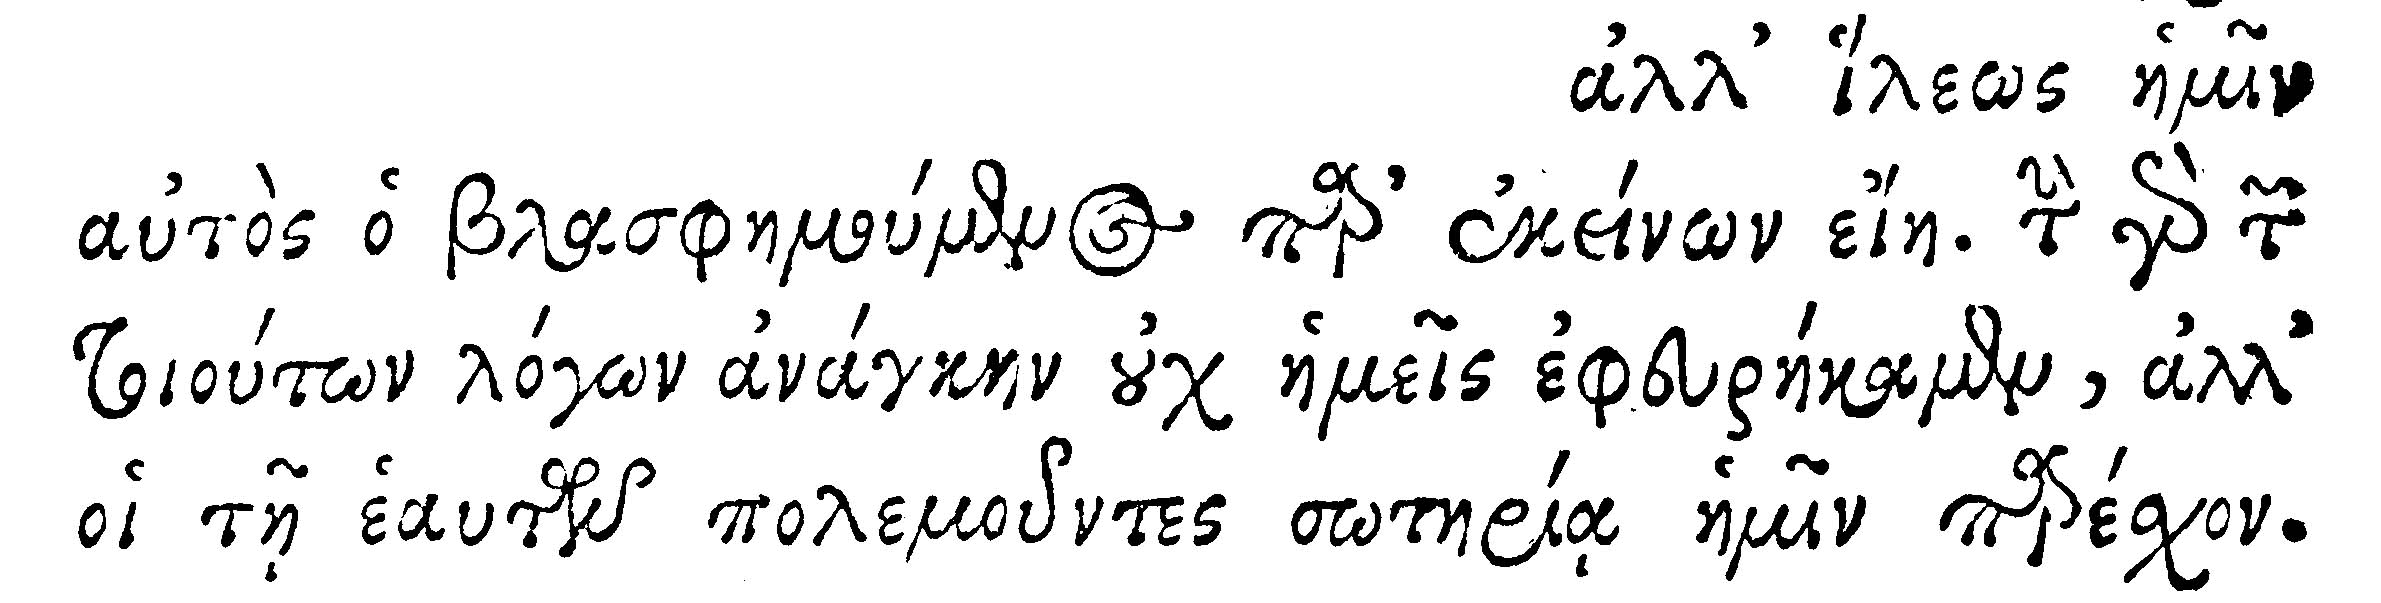 ἀλλ’ ἵλεως ἡμῖν
αὐτὸς ὁ βλασφημούμενος παρ’ ἐκείνων εἴη. τὴν γὰρ τῶν
τοιούτων λόγων ἀνάγκην οὐχ ἡμεῖς ἐφευρήκαμεν, ἀλλ’
οἱ τῇ ἑαυτῶν πολεμοῦντες σωτηρίᾳ ἡμῖν παρέχον.